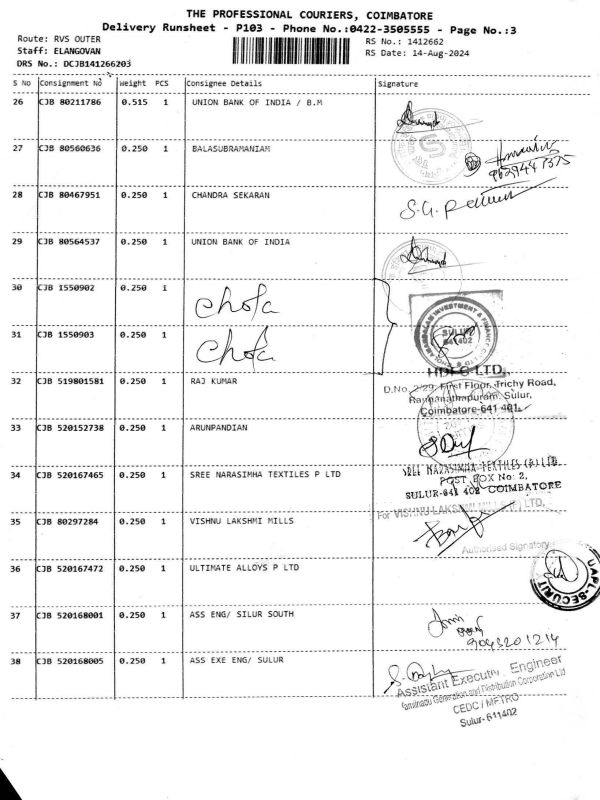 THE PROFESSIONAL COURIERS, COIMBATORE
Delivery Runsheet - P103 - Phone No.:0422-3505555 - Page No.:3
Route: RVS OUTER
RS No.: 1412662
Staff: ELANGOVAN
RS Date: 14-Aug-2024
DRS No.: DCJB141266203
S No Consignment No Weight PCS Consignee Details Signature
26 CJB 80211786 0.515 1 UNION BANK OF INDIA / B.M
27 CJB 80560636 0.250 1 BALASUBRAMANIAM
28 CJB 80467951 0.250 1 CHANDRA SEKARAN
29 CJB 80564537 0.250 1 UNION BANK OF INDIA
30 CJB 1550902 0.250 1 Chola
31 CJB 1550903 0.250 1 Chola
CHOLAMANDALAM INVESTMENT & FINANCE CO LTD
SULUR
641402
32 CJB 519801581 0.250 1 RAJ KUMAR
HDFC LTD.
D.No. 2/29, First Floor, Trichy Road,
Sulur,
Coimbatore-641 401.
33 CJB 520152738 0.250 1 ARUNPANDIAN
34 CJB 520167465 0.250 1 SREE NARASIMHA TEXTILES P LTD
SREE NARASIMHA TEXTILES (P) LTD
POST BOX No: 2,
SULUR-641 402 COIMBATORE
35 CJB 80297284 0.250 1 VISHNU LAKSHMI MILLS
For VISHNU LAKSHMI MILLS (P) LTD,
Authorised Signatory
36 CJB 520167472 0.250 1 ULTIMATE ALLOYS P LTD
UAPL-SECURITY
37 CJB 520168001 0.250 1 ASS ENG/ SILUR SOUTH
9043201214
38 CJB 520168005 0.250 1 ASS EXE ENG/ SULUR
Assistant Executive Engineer
Tamilnadu Generation and Distribution Corporation Ltd
CEDC / METRO
Sulur-611402